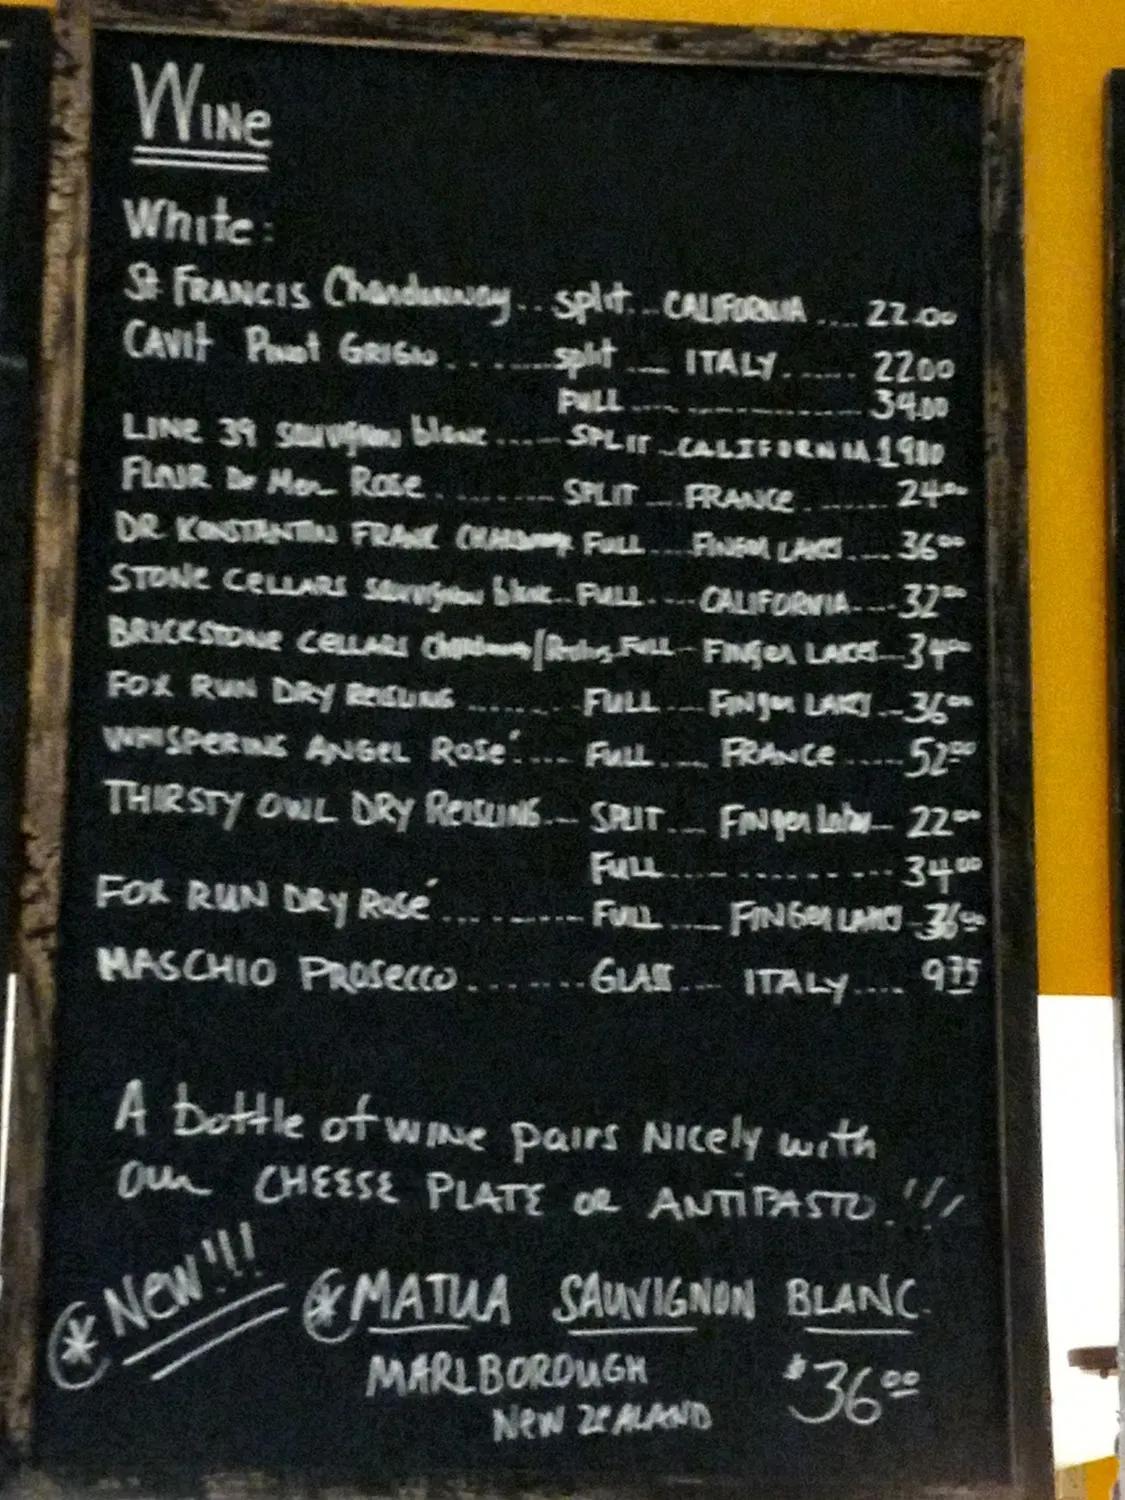 Wine
White:
St FRANCIS Chardonnay.. split... CALIFORNIA .... 22.00
CAVIT Pinot GRIGIO........split .... ITALY...... 2200
FULL ................ 34.00
LINE 39 sauvignon blanc ..... SPLIT ..CALIFORNIA 1900
FLAIR De Mer Rose......... SPLIT ... FRANCE....... 24⁰⁰
DR KONSTANTIN FRANK FULL.... Finger LAKES.... 36⁰⁰
STONE CELLARS Sauvignon blanc.. FULL..... CALIFORNIA....32⁰⁰
BRICKSTONE CELLARS Chardonnay/ FULL - Finger LAKES - 34⁰⁰
FOX RUN DRY REISLING ....... FULL .... Finger LAKES ...36⁰⁰
WHISPERING ANGEL Rosé.... FULL .... FRANCE .....52⁰⁰
THIRSTY OWL DRY REISLING... SPLIT.... Finger Lakes - 22⁰⁰
FULL ............... 34⁰⁰
FOX RUN DRY Rosé .......... FULL .... FINGER LAKES 36⁰⁰
MASCHIO PROSECCO.........GLASS.... ITALY.... 9⁷⁵
A bottle of wine pairs Nicely with
our CHEESE PLATE OR ANTIPASTO.!!!
* NEW!!! * MATUA SAUVIGNON BLANC.
MARLBOROUGH $36⁰⁰
NEW ZEALAND